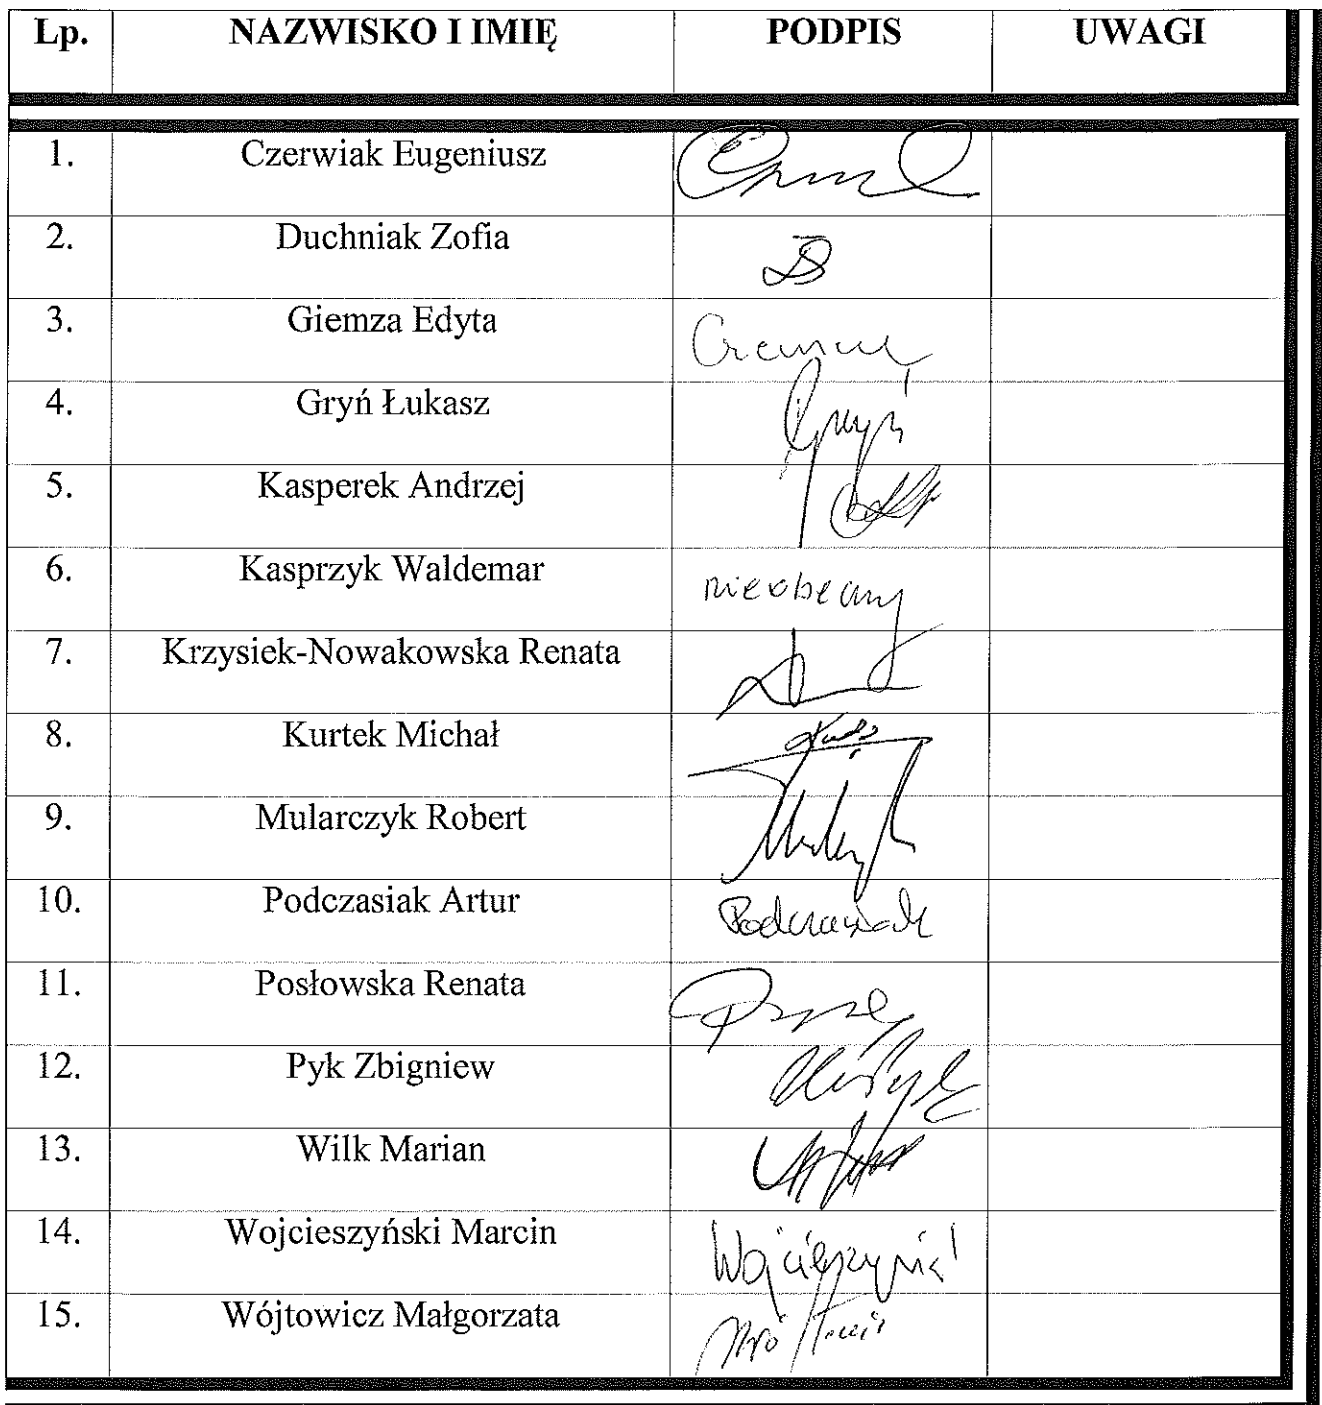 Lp. NAZWISKO I IMIĘ PODPIS UWAGI
1. Czerwiak Eugeniusz
2. Duchniak Zofia
3. Giemza Edyta
4. Gryń Łukasz Gryń
5. Kasperek Andrzej
6. Kasprzyk Waldemar nieobecny
7. Krzysiek-Nowakowska Renata
8. Kurtek Michał
9. Mularczyk Robert
10. Podczasiak Artur Podczasiak
11. Posłowska Renata
12. Pyk Zbigniew
13. Wilk Marian
14. Wojcieszyński Marcin
15. Wójtowicz Małgorzata